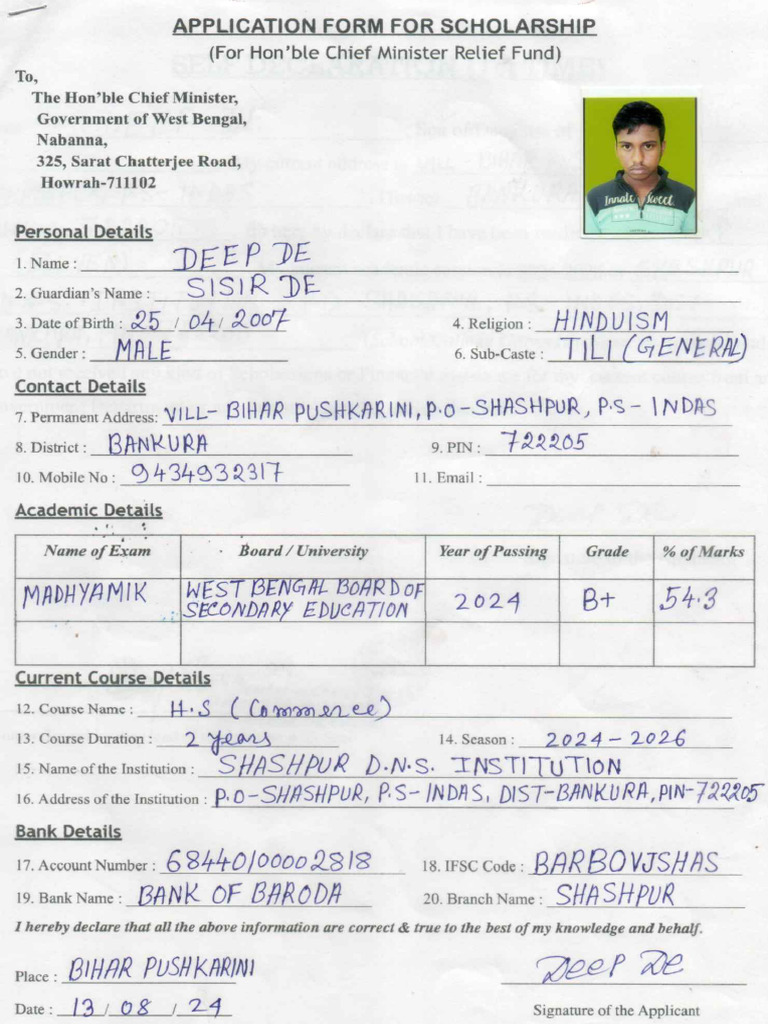 APPLICATION FORM FOR SCHOLARSHIP
(For Hon'ble Chief Minister Relief Fund)
To,
The Hon'ble Chief Minister,
Government of West Bengal,
Nabanna,
325, Sarat Chatterjee Road,
Howrah-711102
Personal Details
1. Name : DEEP DE
2. Guardian's Name : SISIR DE
3. Date of Birth : 25 / 04 / 2007 4. Religion : HINDUISM
5. Gender : MALE 6. Sub-Caste : TILI (GENERAL)
Contact Details
7. Permanent Address: VILL- BIHAR PUSHKARINI, P.O-SHASHPUR, P.S- INDAS
8. District : BANKURA 9. PIN : 722205
10. Mobile No : 9434932317 11. Email :
Academic Details
Name of Exam Board / University Year of Passing Grade % of Marks
MADHYAMIK WEST BENGAL BOARD OF SECONDARY EDUCATION 2024 B+ 54.3
Current Course Details
12. Course Name : H.S (Commerce)
13. Course Duration : 2 years 14. Season : 2024-2026
15. Name of the Institution : SHASHPUR D.N.S. INSTITUTION
16. Address of the Institution : P.O-SHASHPUR, P.S- INDAS, DIST-BANKURA, PIN-722205
Bank Details
17. Account Number : 68440100002818 18. IFSC Code : BARB0VJSHAS
19. Bank Name : BANK OF BARODA 20. Branch Name : SHASHPUR
I hereby declare that all the above information are correct & true to the best of my knowledge and behalf.
Place : BIHAR PUSHKARINI Deep De
Date : 13 / 08 / 24 Signature of the Applicant